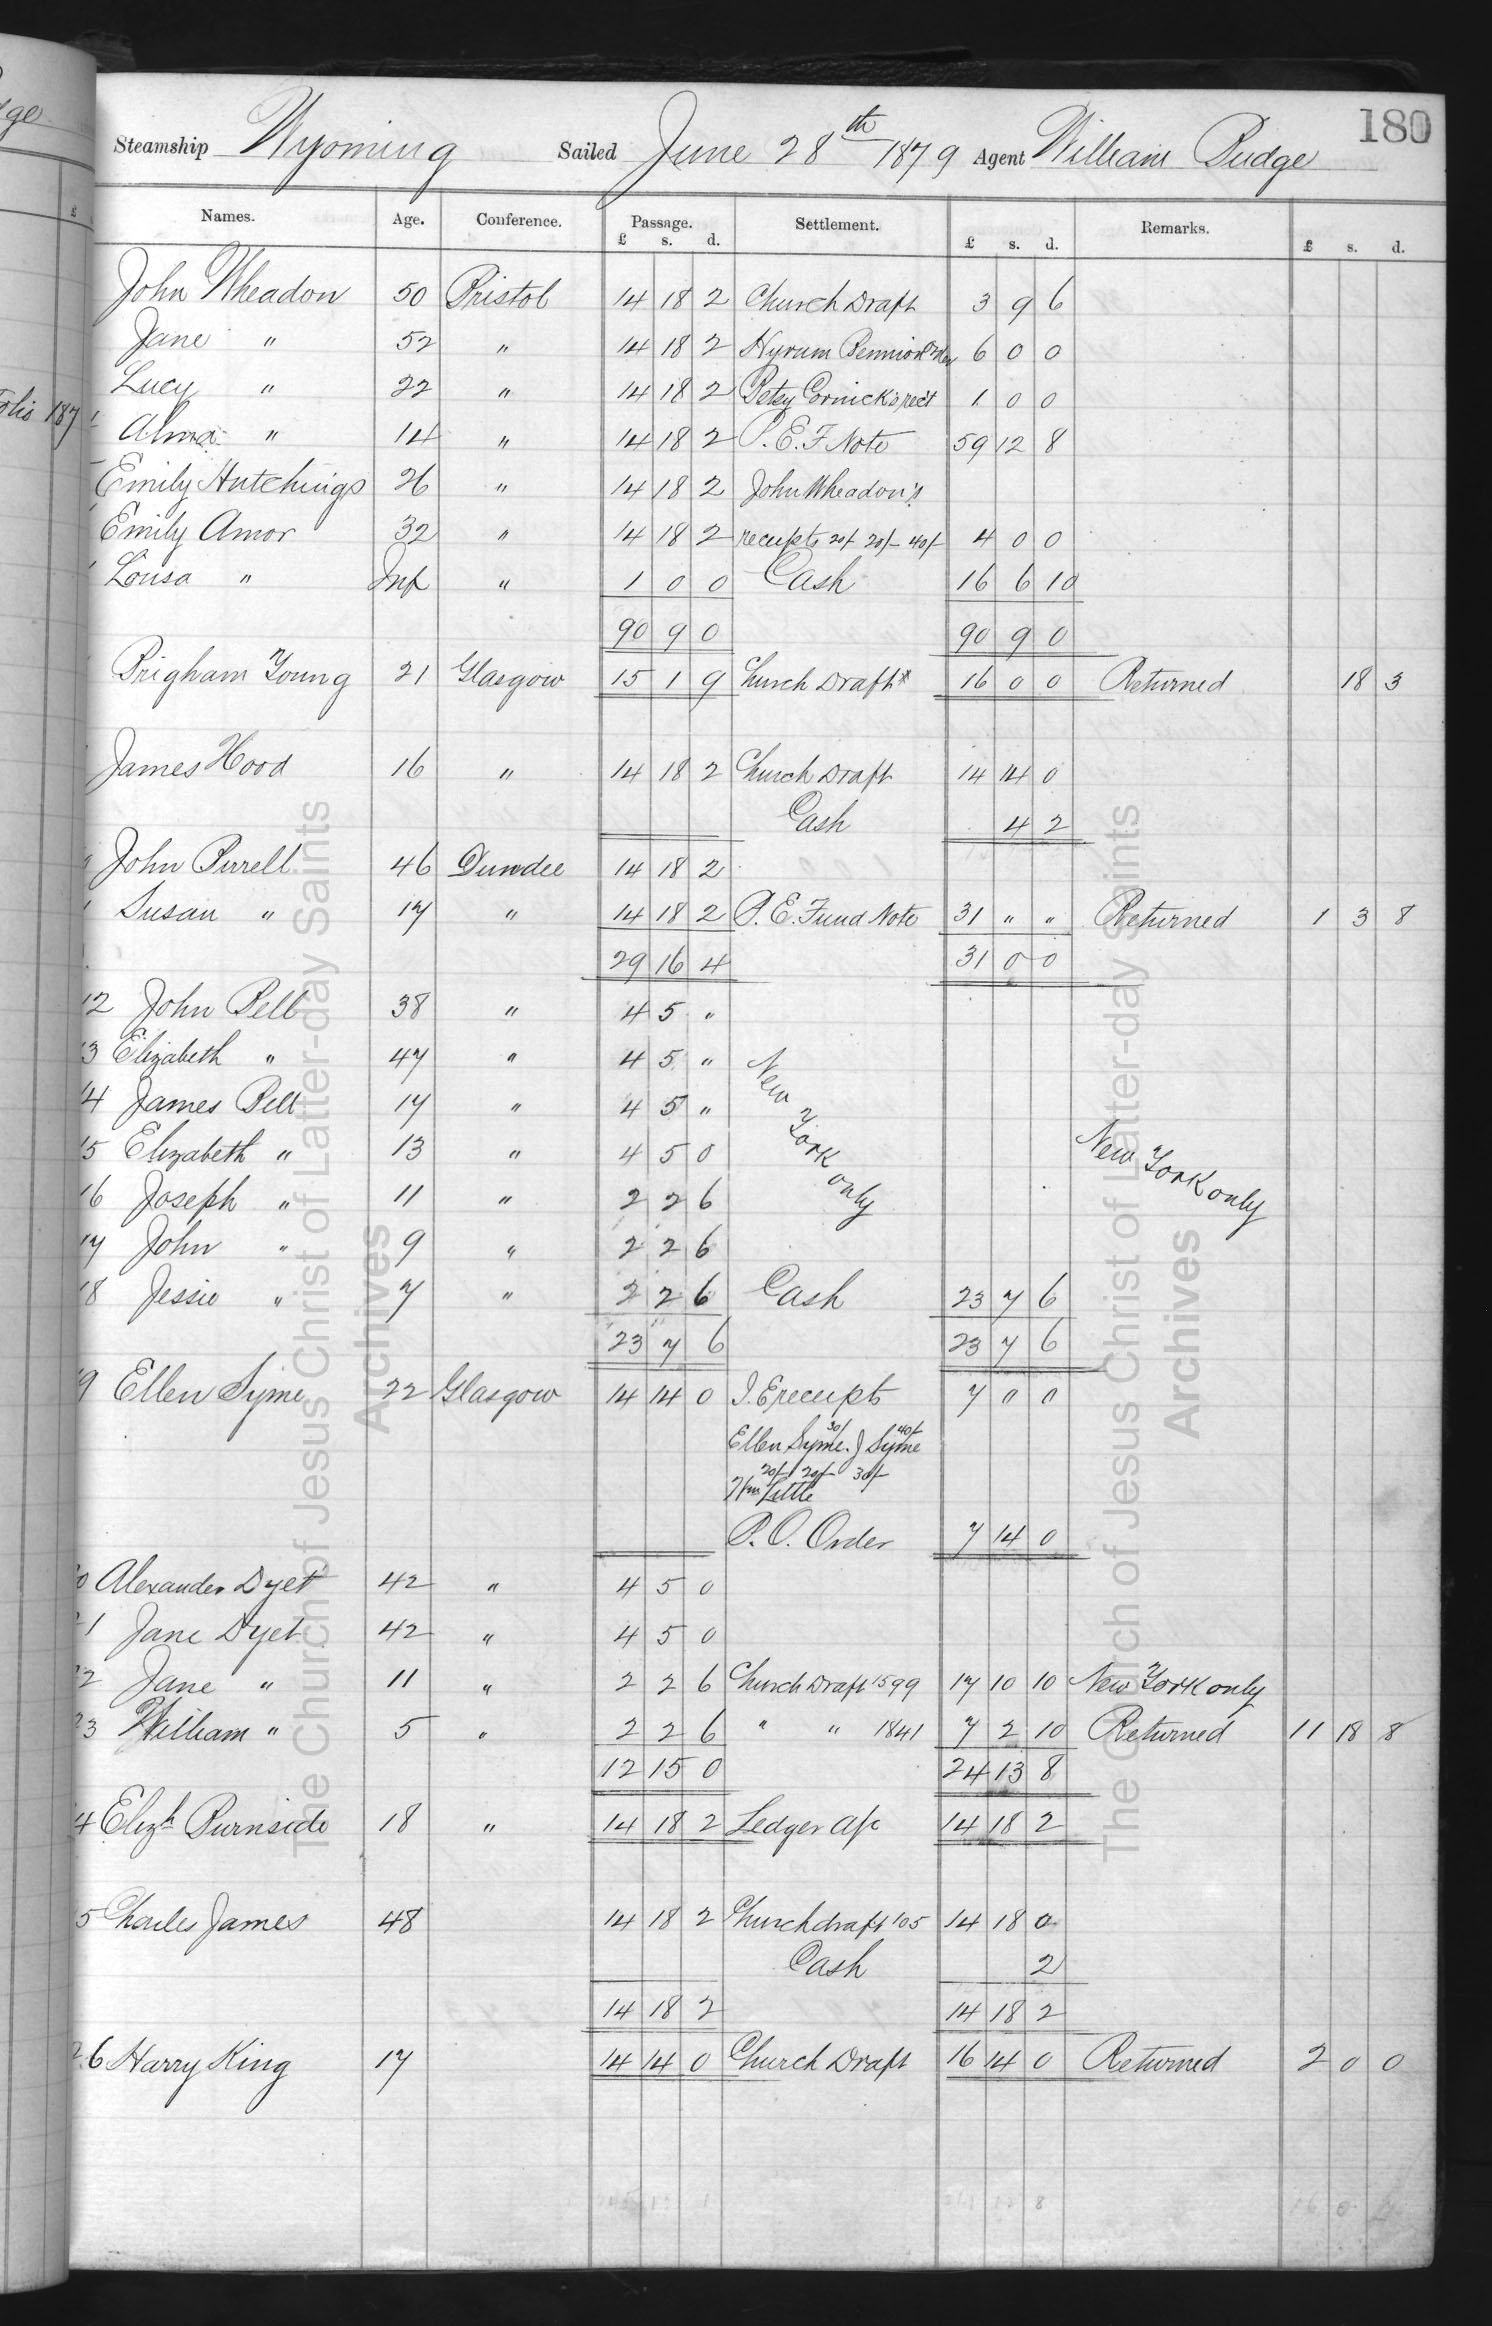 180
Steamship Wyoming Sailed June 28th 1879 Agent William Budge
Names. Age. Conference. Passage. Settlement. Remarks.
£ s. d. £ s. d. £ s. d.
John Wheadon 50 Bristol 14 18 2 Church Draft 3 9 6
Jane " 52 " 14 18 2 Hyrum 6 0 0
Lucy " 22 " 14 18 2 Betsy Cornick's rec't 1 0 0
Alma " 14 " 14 18 2 P. E. F Note 59 12 8
Emily Hutchings 26 " 14 18 2 John Wheadon's
Emily Amor 32 " 14 18 2 receipts 20/- 20/- 40/- 4 0 0
Lousa " Inf " 1 0 0 Cash 16 6 10
90 9 0 90 9 0
Brigham Young 21 Glasgow 15 1 9 Church Draft* 16 0 0 Returned 18 3
James Hood 16 " 14 18 2 Church Draft 14 14 0
Cash 4 2
John Burrell 46 Dundee 14 18 2
Susan " 17 " 14 18 2 P. E. Fund Note 31 " " Returned 1 3 8
29 16 4 31 0 0
12 John Bell 38 " 4 5 "
13 Elizabeth " 47 " 4 5 "
14 James Bell 17 " 4 5 "
15 Elizabeth " 13 " 4 5 0
New York only
New York only
16 Joseph " 11 " 2 2 6
17 John " 9 " 2 2 6
18 Jessie " 7 " 2 2 6 Cash 23 7 6
23 7 6 23 7 6
9 Ellen Syme 22 Glasgow 14 14 0 I. E receipts 7 0 0
30/- 40/-
Ellen Syme. J Syme
20/- 20/- 30/-
Wm Little
P. O. Order 7 14 0
0 Alexander Dyet 42 " 4 5 0
21 Jane Dyet 42 " 4 5 0
22 Jane " 11 " 2 2 6 Church Draft 1599 17 10 10 New York only
23 William " 5 " 2 2 6 " " 1841 7 2 10 Returned 11 18 8
12 15 0 24 13 8
4 Elizh Burnside 18 " 14 18 2 Ledger a/c 14 18 2
5 Charles James 48 14 18 2 Church draft 105 14 18 0
Cash 2
14 18 2 14 18 2
26 Harry King 17 14 14 0 Church Draft 16 14 0 Returned 2 0 0
The Church of Jesus Christ of Latter-day Saints
Archives
The Church of Jesus Christ of Latter-day Saints
Archives